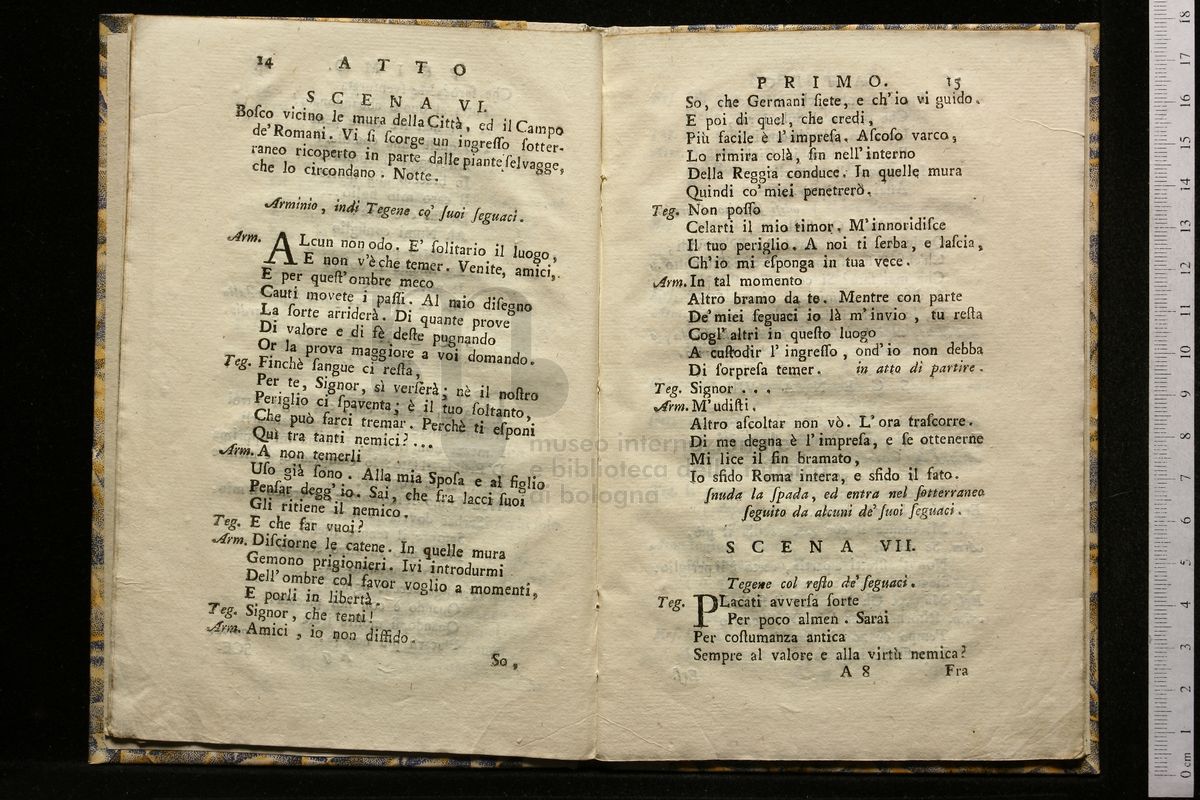 14 A T T O
S C E N A VI.
Boſco vicino le mura della Città, ed il Campo
de' Romani. Vi ſi ſcorge un ingreſſo ſotter-
raneo ricoperto in parte dalle piante ſelvagge,
che lo circondano. Notte.
Arminio, indi Tegene co' ſuoi ſeguaci.
Arm. ALcun non odo. E' ſolitario il luogo,
E non v'è che temer. Venite, amici,
E per queſt' ombre meco
Cauti movete i paſſi. Al mio diſegno
La ſorte arriderà. Di quante prove
Di valore e di fè deſte pugnando
Or la prova maggiore a voi domando.
Teg. Finchè ſangue ci reſta,
Per te, Signor, sì verſerà; nè il noſtro
Periglio ci ſpaventa; è il tuo ſoltanto,
Che può farci tremar. Perchè ti eſponi
Quì tra tanti nemici? ...
Arm. A non temerli
Uſo già ſono. Alla mia Spoſa e al figlio
Penſar degg' io. Sai, che fra lacci ſuoi
Gli ritiene il nemico.
Teg. E che far vuoi?
Arm. Diſciorne le catene. In quelle mura
Gemono prigionieri. Ivi introdurmi
Dell' ombre col favor voglio a momenti,
E porli in libertà.
Teg. Signor, che tenti!
Arm. Amici, io non diffido.
So,
P R I M O. 15
So, che Germani ſiete, e ch' io vi guido.
E poi di quel, che credi,
Più facile è l' impreſa. Aſcoſo varco,
Lo rimira colà, fin nell' interno
Della Reggia conduce. In quelle mura
Quindi co' miei penetrerò.
Teg. Non poſſo
Celarti il mio timor. M' innoridiſce
Il tuo periglio. A noi ti ſerba, e laſcia,
Ch' io mi eſponga in tua vece.
Arm. In tal momento
Altro bramo da te. Mentre con parte
De' miei ſeguaci io là m' invio, tu reſta
Cogl' altri in queſto luogo
A cuſtodir l' ingreſſo, ond' io non debba
Di ſorpreſa temer. in atto di partire.
Teg. Signor . . .
Arm. M' udiſti.
Altro aſcoltar non vò. L' ora traſcorre.
Di me degna è l' impreſa, e ſe ottenerne
Mi lice il fin bramato,
Io sfido Roma intera, e sfido il fato.
ſnuda la ſpada, ed entra nel ſotterraneo
ſeguito da alcuni de' ſuoi ſeguaci.
S C E N A VII.
Tegene col reſto de' ſeguaci.
Teg. PLacati avverſa ſorte
Per poco almen. Sarai
Per coſtumanza antica
Sempre al valore e alla virtù nemica?
A 8 Fra
museo intern
e biblioteca d
di bologna
0 cm 1 2 3 4 5 6 7 8 9 10 11 12 13 14 15 16 17 18